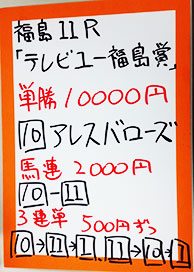 福島11R
「テレビユー福島賞」
単勝10000円
10アレスバローズ
馬連2000円
10-11
3連単 500円ずつ
10→11→1 11→10→1